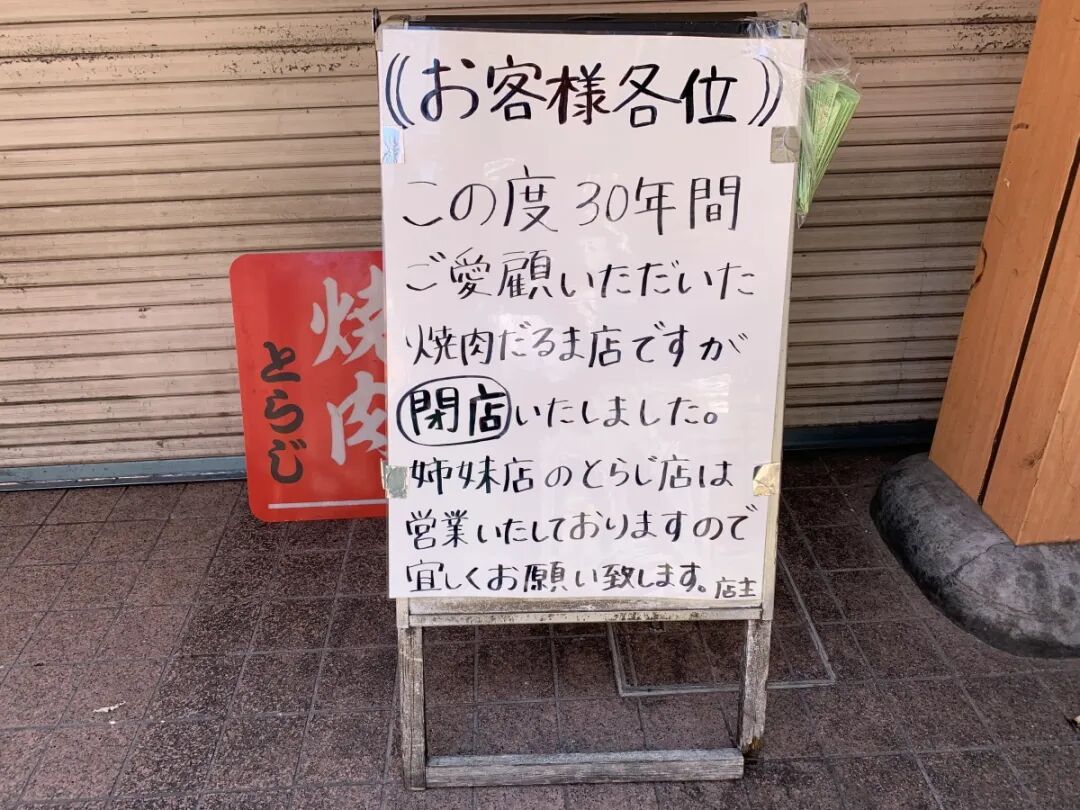 ((お客様各位))
この度30年間
ご愛顧いただいた
焼肉だるま店ですが
閉店いたしました。
姉妹店のとらじ店は
営業いたしておりますので
宜しくお願い致します。店主
焼肉
とらじ